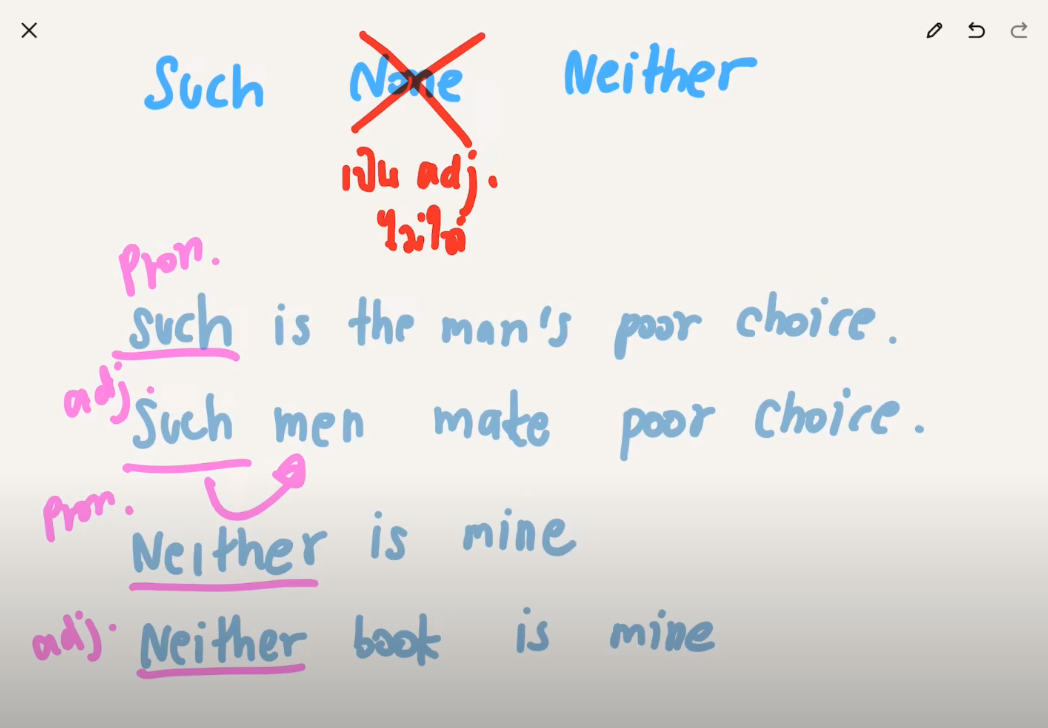 Such None Neither
เป็น adj.
ไม่ได้
pron.
Such is the man's poor choice.
adj.
Such men make poor choice.
pron.
Neither is mine
adj.
Neither book is mine